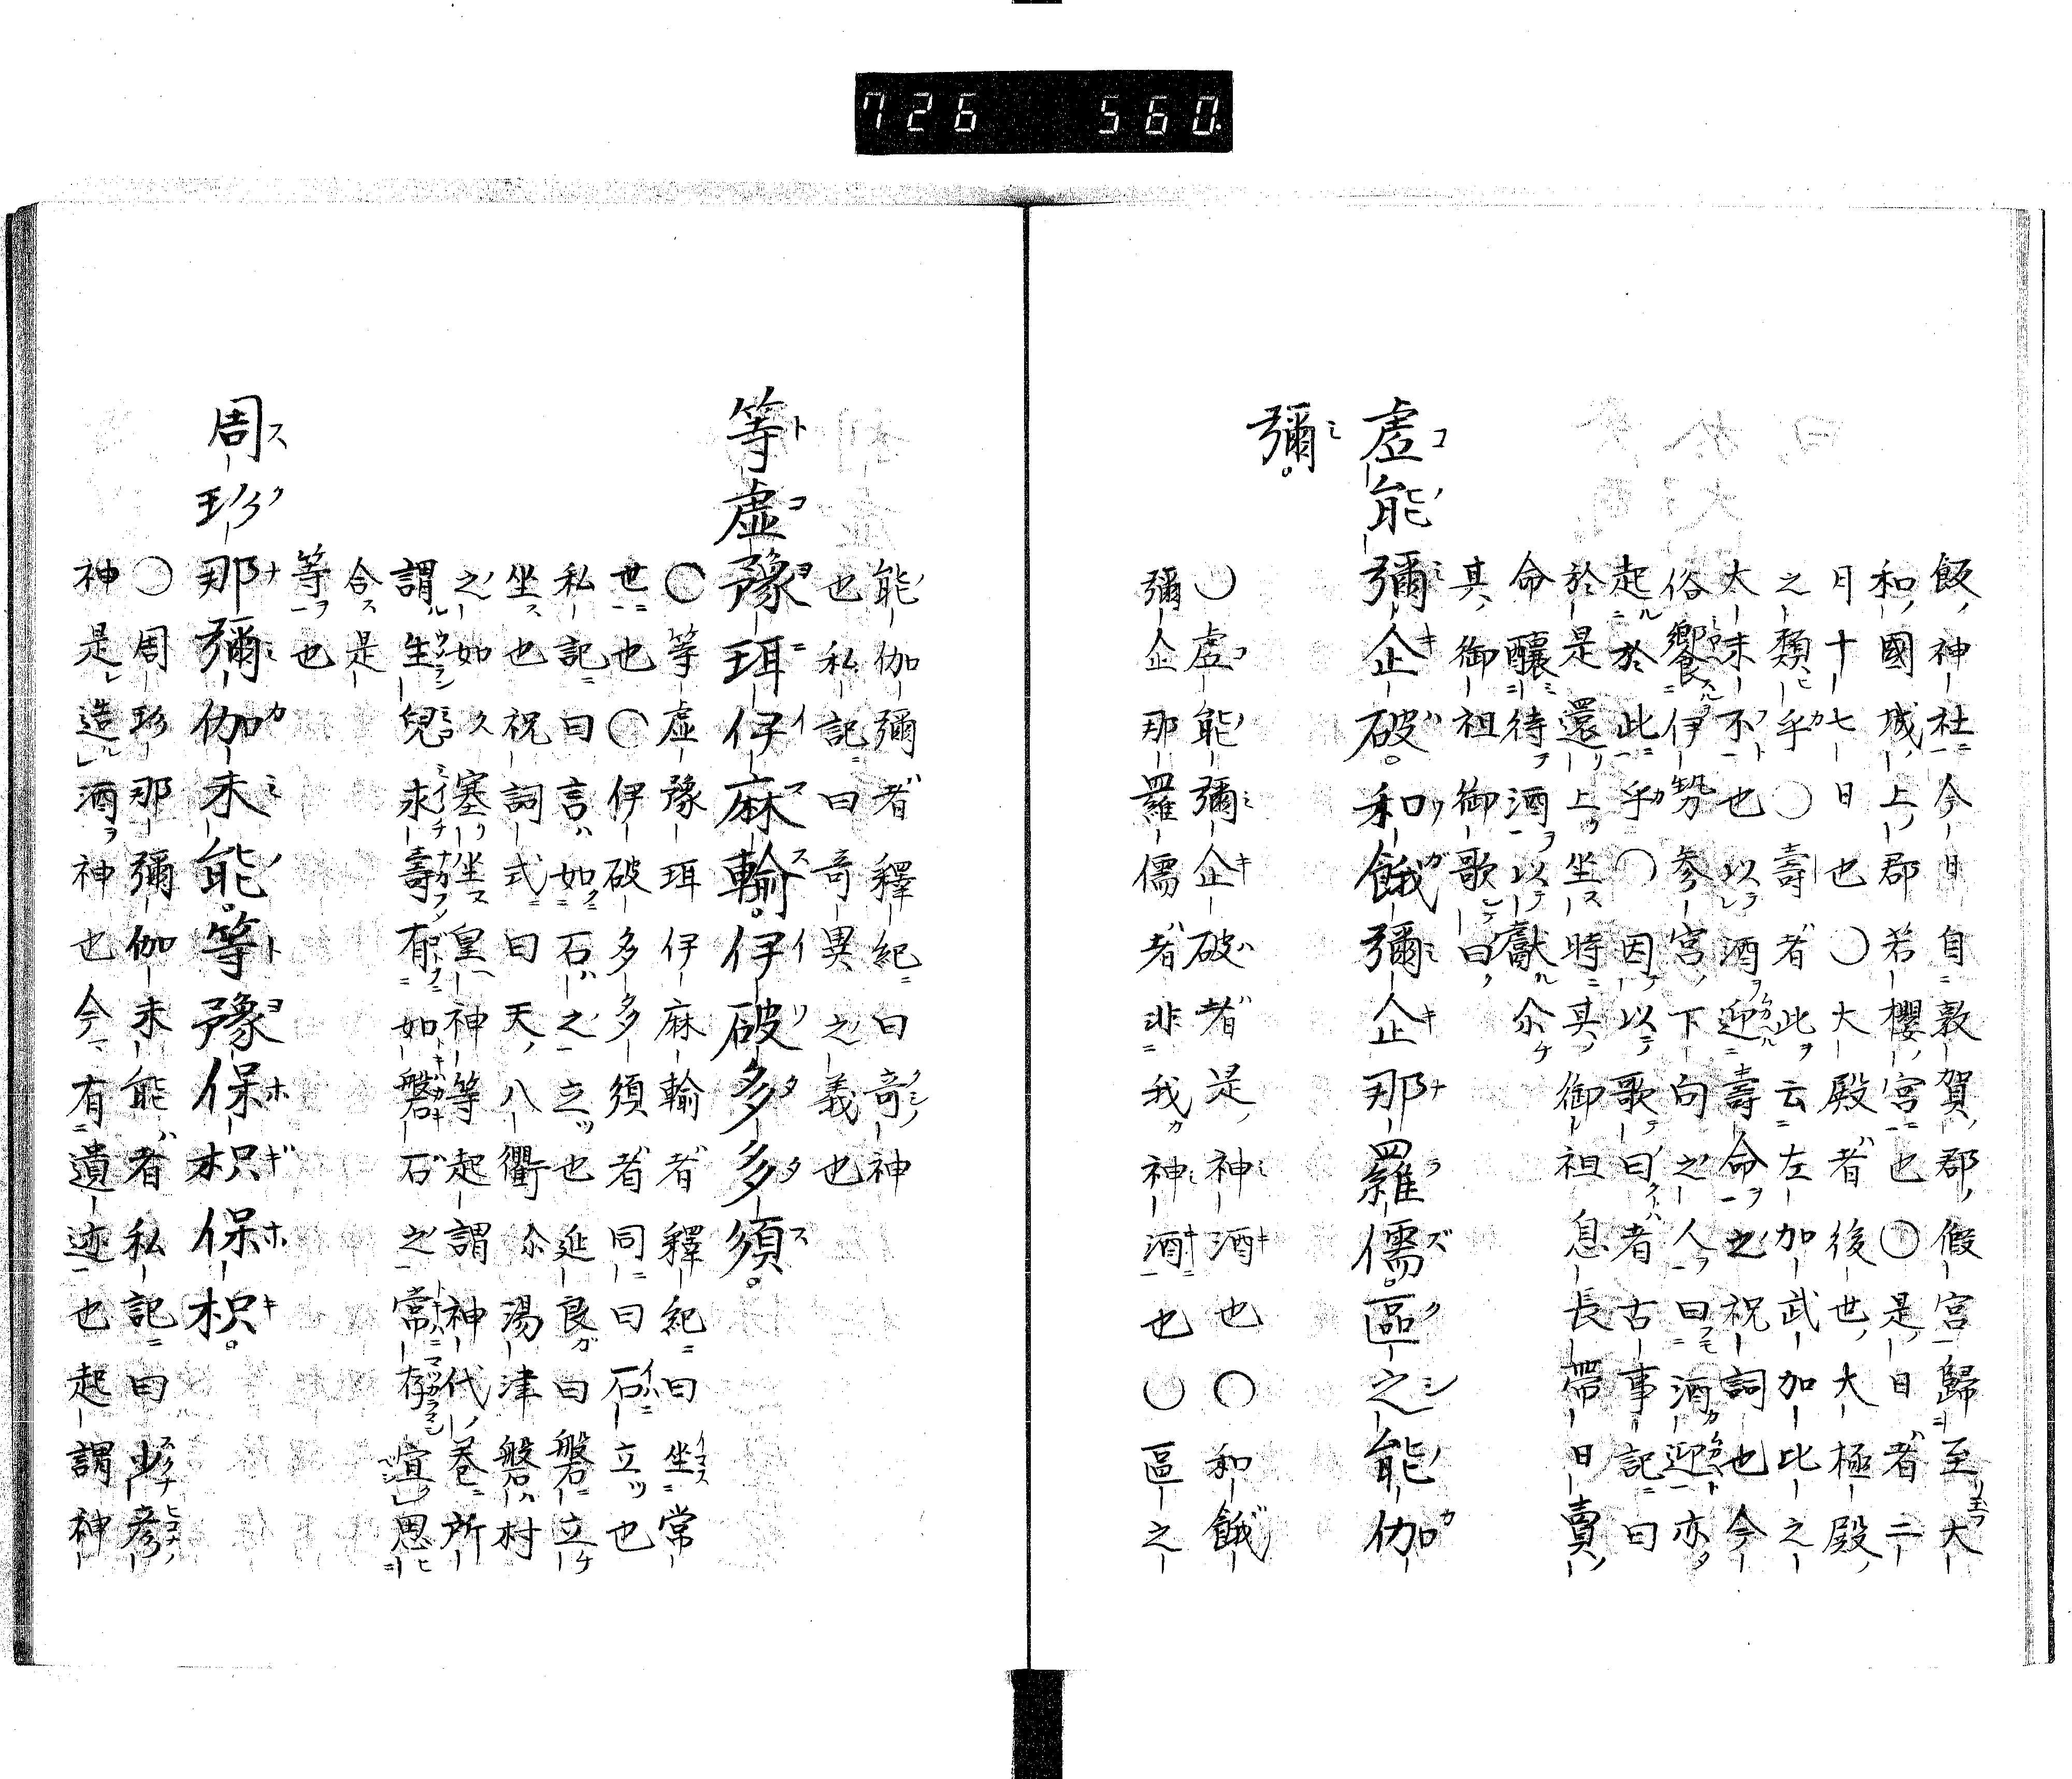 726 560
飯神社今日自敦賀郡假宮歸至大
和國城上郡若櫻宮也○是日者二
月十七日也○大殿者後世大極殿
之類乎○壽者此云左加武加比之
太末不也以酒迎壽命之祝詞也今
俗饗伊勢參宮下向之人曰酒迎亦
起於此乎○因以歌曰者古事記曰
於是還上坐時其御祖息長帶日賣
命釀待酒以獻尒
其御祖御歌曰
虛能彌企破。和餓彌企那羅儒。區之能伽
彌。
○虛能彌企破者是神酒也○和餓
彌企那羅儒者非我神酒也○區之
能伽彌者釋紀曰奇神
也私記曰奇異之義也
等虛豫珥伊麻輸。伊破多多須。
○等虛豫珥伊麻輸者釋紀曰坐常
世也○伊破多多須者同曰石立也
私記曰言如石之立也延良曰磐立
坐也祝詞式曰天八衢尒湯津磐村
之如久塞坐皇神等起謂神代卷所
謂生兒永壽有如磐石之常存宜思
合是
等也
周珍那彌伽未能。等豫保枳保枳。
○周珍那彌伽未能者私記曰少彥
神是造酒神也今有遺迹也起謂神